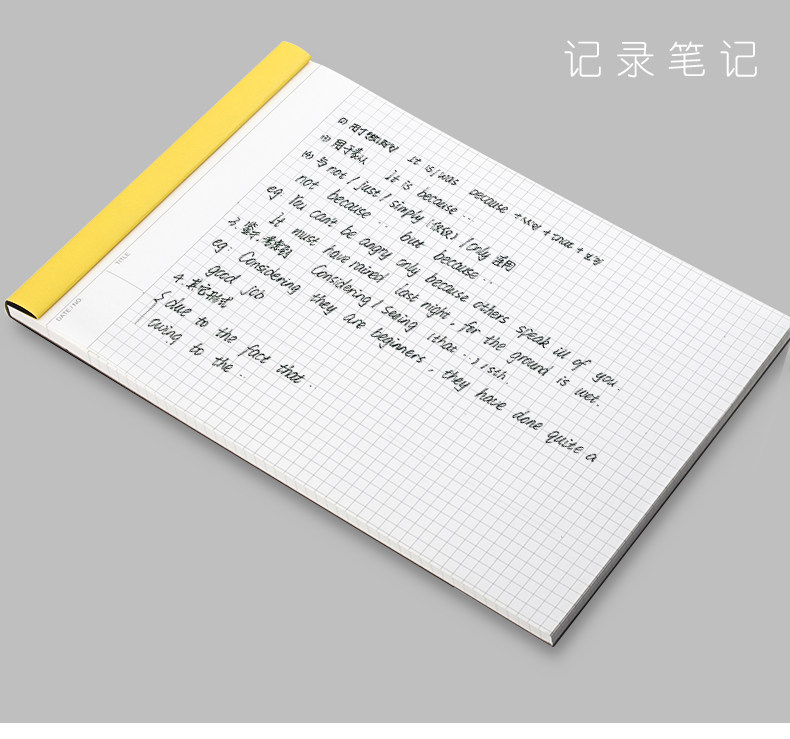 记录笔记
TITLE
DATE / NO
It is / was because
It is because ...
与 not / just / simply / only 连用
not because ... but because ...
eg You can't be angry only because others speak ill of you.
It must have rained last night, for the ground is wet.
3. Considering / Seeing (that ...) / sth.
eg. Considering they are beginners, they have done quite a
good job
4. 其它形式
due to the fact that ...
owing to the ...